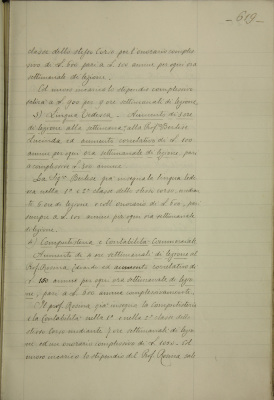 - 619 -
classe dello stesso Corso per l'onorario comples-
sivo di L. 600 pari a L. 100 annue per ogni ora
settimanale di lezione.
Col nuovo incarico lo stipendio complessivo
salirà a L. 900 per 9 ore settimanali di lezione.
c) Lingua Tedesca. - Aumento di 3 ore
di lezione alla settimana alla Prof.
ed aumento correlativo di L. 100
annue per ogni ora settimanale di lezione, pari
a complessive L. 300 annue.
La Sig.ra già insegna la lingua tede-
sca nella 1a e 2a classe dello stesso corso, median-
te 6 ore di lezione e coll'onorario di L. 600, pari
sempre a L. 100 annue per ogni ora settimanale
di lezione.
d) Computisteria e Contabilità Commerciale
- Aumento di 3 ore settimanali di lezione al
Prof. Ravenna ed aumento correlativo di
L. per ogni ora settimanale di lezio-
ne, pari a L. annue complessivamente.
Il prof. Ravenna già insegna la Computisteria
e la Contabilità nella 1a e nella 2a classe dello
stesso corso mediante 7 ore settimanali di lezio-
ne ed un onorario complessivo di L. Col
nuovo incarico lo stipendio del Prof. Ravenna sali-